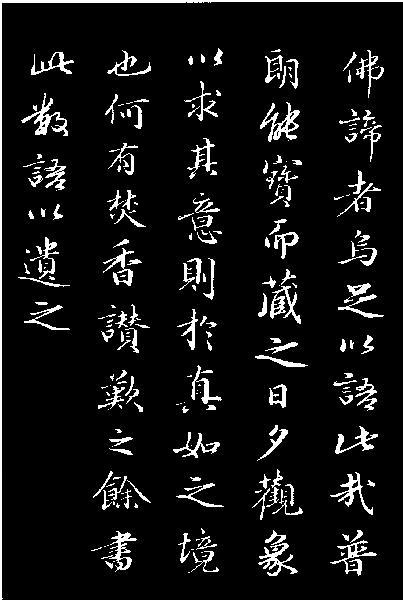 佛諦者烏足以語此哉普
朗能寶而藏之日夕觀象
以求其意則於真如之境
也何有焚香讃歎之餘書
此數語以遺之